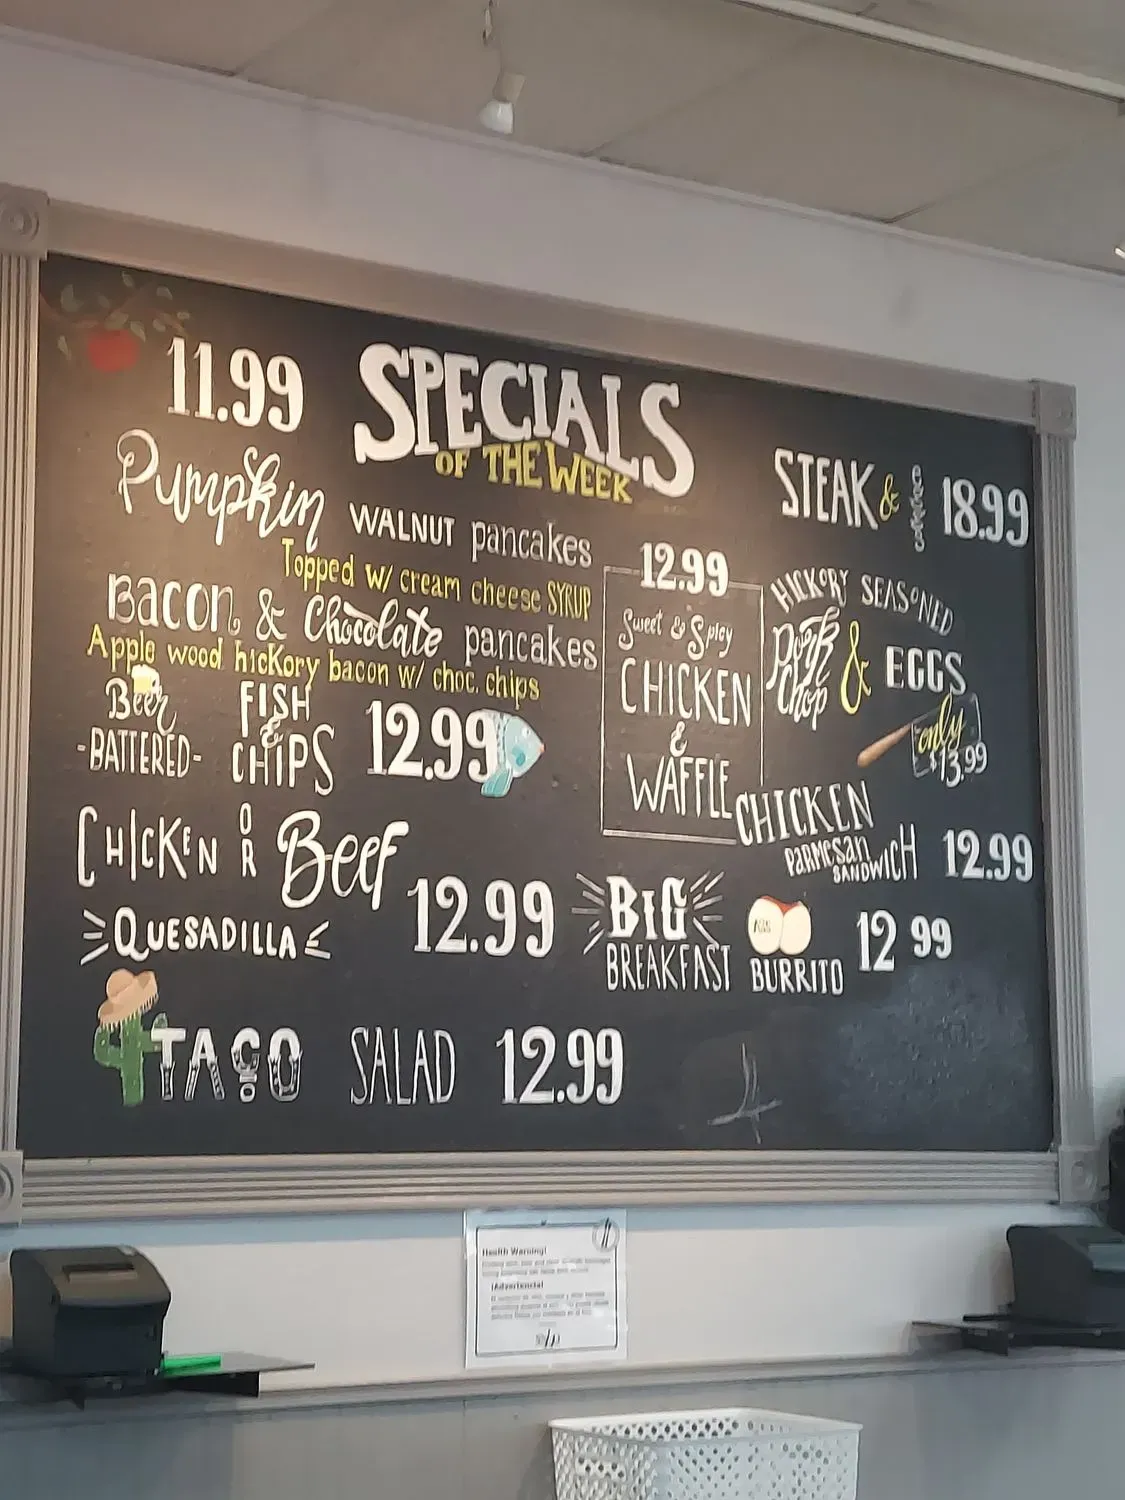 SPECIALS
OF THE WEEK
11.99
Pumpkin WALNUT pancakes
Topped w/ cream cheese SYRUP
Bacon & Chocolate pancakes
Apple wood hickory bacon w/ choc. chips
Beer
-BATTERED-
FISH
&
CHIPS
12.99
CHICKEN OR Beef
QUESADILLA
12.99
TACO SALAD 12.99
12.99
Sweet & Spicy
CHICKEN
&
WAFFLE
STEAK & 18.99
HICKORY SEASONED
Pork Chop & EGGS
only
$13.99
CHICKEN
PARMESAN
SANDWICH
12.99
BIG
BREAKFAST BURRITO
12 99
Health Warning!
¡Advertencia!